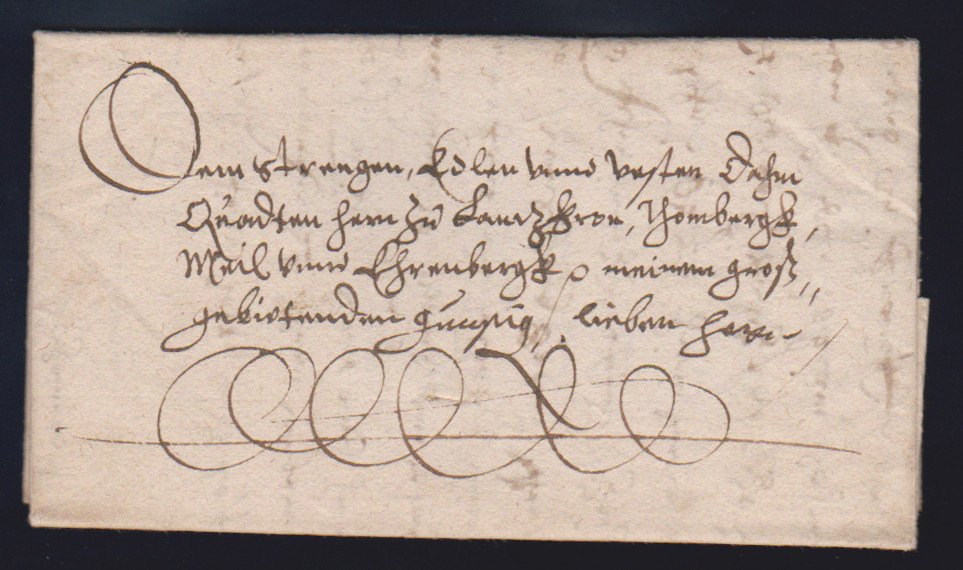 Dem Strengen, Edlen vnnd vesten Dahm
Quadten hern zu Lantzkron, Thombergk,
Meil vnnd Ehrenbergk meinem groß„
gebietenden gunstig, lieben hern